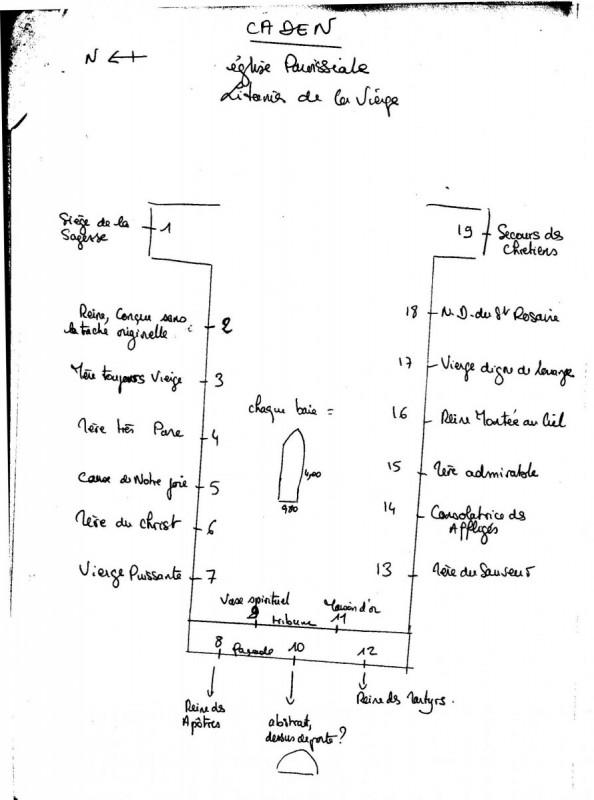 CADEN
N
église Paroissiale
Litanies de la Vierge
Siège de la
Sagesse
1
19
Secours des
Chrétiens
Reine, Conçue sans
la tache originelle
2
18
N.D. du St Rosaire
Mère toujours Vierge
3
17
Vierge digne de louange
chaque baie =
4,00
0,80
Mère très Pure
4
16
Reine Montée au Ciel
Cause de Notre joie
5
15
Mère admirable
Mère du Christ
6
14
Consolatrice des
Affligés
Vierge Puissante
7
13
Mère du Sauveur
Vase spirituel
9
tribune
Maison d'or
11
8
Façade
10
12
Reine des
Apôtres
abstrait,
dessus de porte ?
Reine des Martyrs.